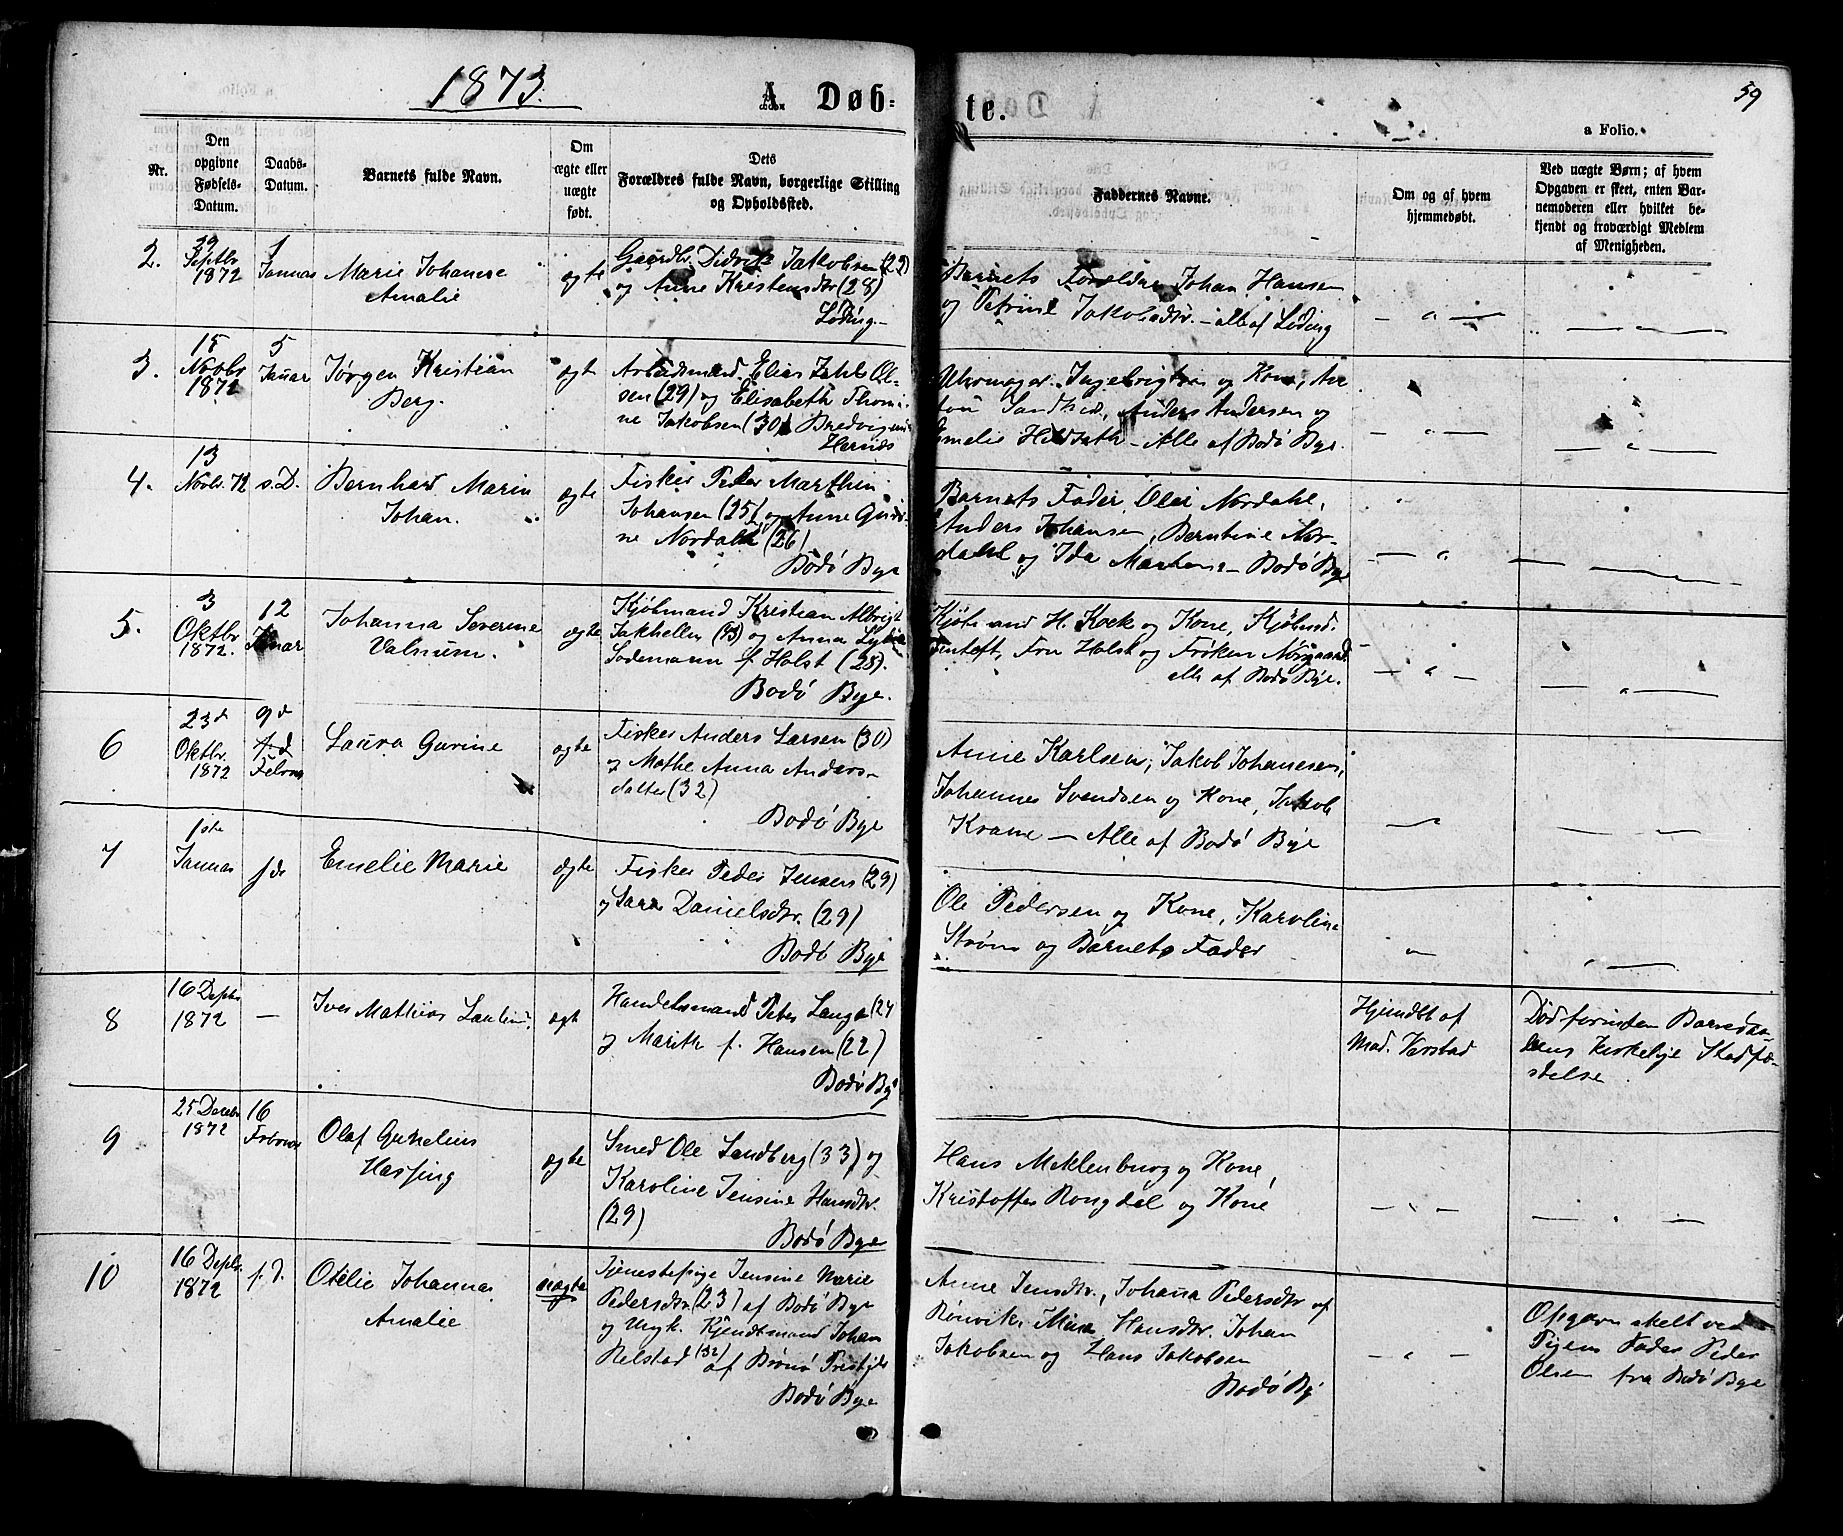 1873.
A. Døb-
te.
59
a Folio.
Nr.
Den
opgivne
Fødsels-
Datum.
Daabs-
Datum.
Barnets fulde Navn.
Om
ægte eller
uægte
født.
Dets
Forældres fulde Navn, borgerlige Stilling
og Opholdssted.
Faddernes Navne.
Om og af hvem
hjemmedøbt.
Ved uægte Børn; af hvem
Opgaven er skeet, enten Bar-
nemoderen eller hvilket be-
kjendt og troværdigt Medlem
af Menigheden.
2.
29
Septbr
1872
1
Januar
Marie Johanne
Amalie
ægte
Gaardbr. Didrik Jakobsen (29)
og Anne Kristensdtr (28)
Løding.
Barnets Forældre, Johan Hansen
og Petrine Jakobsdtr. – alle af Løding
3.
15
Novbr
1872
5
Januar
Jørgen Kristian
Berg.
ægte
Arbeidsmand Elias Zahl Ol-
sen (29) og Elisabeth Thomi-
ne Jakobsen (30)
Uhrmager Ingebrigtsen og Kone,
Sandhei, Anders Andersen og
Emelie Hildseth – Alle af Bodø Bye.
4.
13
Novbr. 72
s. D.
Bernhard Marin
Johan.
ægte
Fisker Peder Marthin
Johansen (25) og Anne Guri-
ne Nordahl (26)
Bodø Bye
Barnets Fader, Olai Nordahl,
Anders Johansen, Berntine Nor-
dahl og Ida Martens – Bodø Bye
5.
3
Oktbr
1872.
12
Januar
Johanna Severine
Valnum.
ægte
Kjøbmand Kristian Albrigt
Jakhelln (43) og Anna Lydia
Sodemann f. Holst (28).
Bodø Bye.
Kjøbmand H. Kock og Kone, Kjøbmd.
Jentoft, Fru Holst og Frøken Nørgaard.
alle af Bodø Bye.
6
23d
Oktbr.
1872
9d
Februar
Laura Gurine
ægte
Fisker Anders Larsen (30)
og Mathe Anna Anders-
datter (32)
Bodø Bye
Anne Karlsen, Jakob Johanesen,
Johannes Svendsen og Kone, Jakob
Krane – Alle af Bodø Bye
7
1ste
Januar
s. d.
Emelie Marie
ægte
Fisker Peder Jensen (29)
og Sara Danielsdtr. (29)
Bodø Bye
Ole Pedersen og Kone, Karoline
Strøm og Barnets Fader
8
16 Septbr
1872
—
Iver Mathias
ægt
Handelsmand Peter Lange (24
og Marith f. Hansen (22)
Bodø Bye
Hjemdbt af
Mad. Verstad
Død forinden Barnedaa-
bens kirkelige Stadfæ-
stelse
9
25 Decebr
1872
16
Februar
Olaf Gunelius
Hassing
ægte
Smed Ole Sandberg (33) og
Karoline Jensine Hansdtr.
(29)
Bodø Bye
Hans Meklenburg og Kone,
Kristoffer Rongdal og Kone
10
16 Septbr.
1872
s. D.
Otelie Johanna
Amalie
uægte
Tjenestepige Jensine Marie
Pedersdtr. (23) af Bodø Bye
og Ungk. Kjendtmand Johan
Relstad (32) af Brønø Prestgjeld
Bodø Bye
Anne Jensdtr., Johana Pedersdtr af
Rønvik, Mina Hansdtr. Johan
Jakobsen og Hans Jakobsen
Bodø By
Opgaven skett ved
Pigens Fader Peder
Olsen fra Bodø Bye